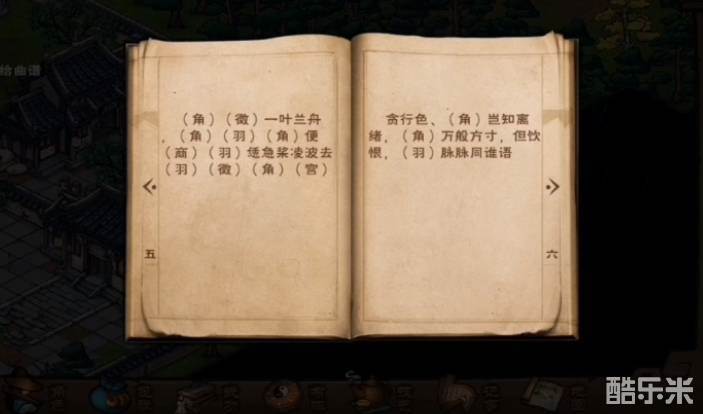 绘曲谱
（角）（微）一叶兰舟
，（角）（羽）（角）便
（商）（羽）恁急桨凌波去
（羽）（微）（角）（宫）
五
贪行色、（角）岂知离
绪，（角）万般方寸，但饮
恨，（羽）脉脉同谁语
六
酷乐米